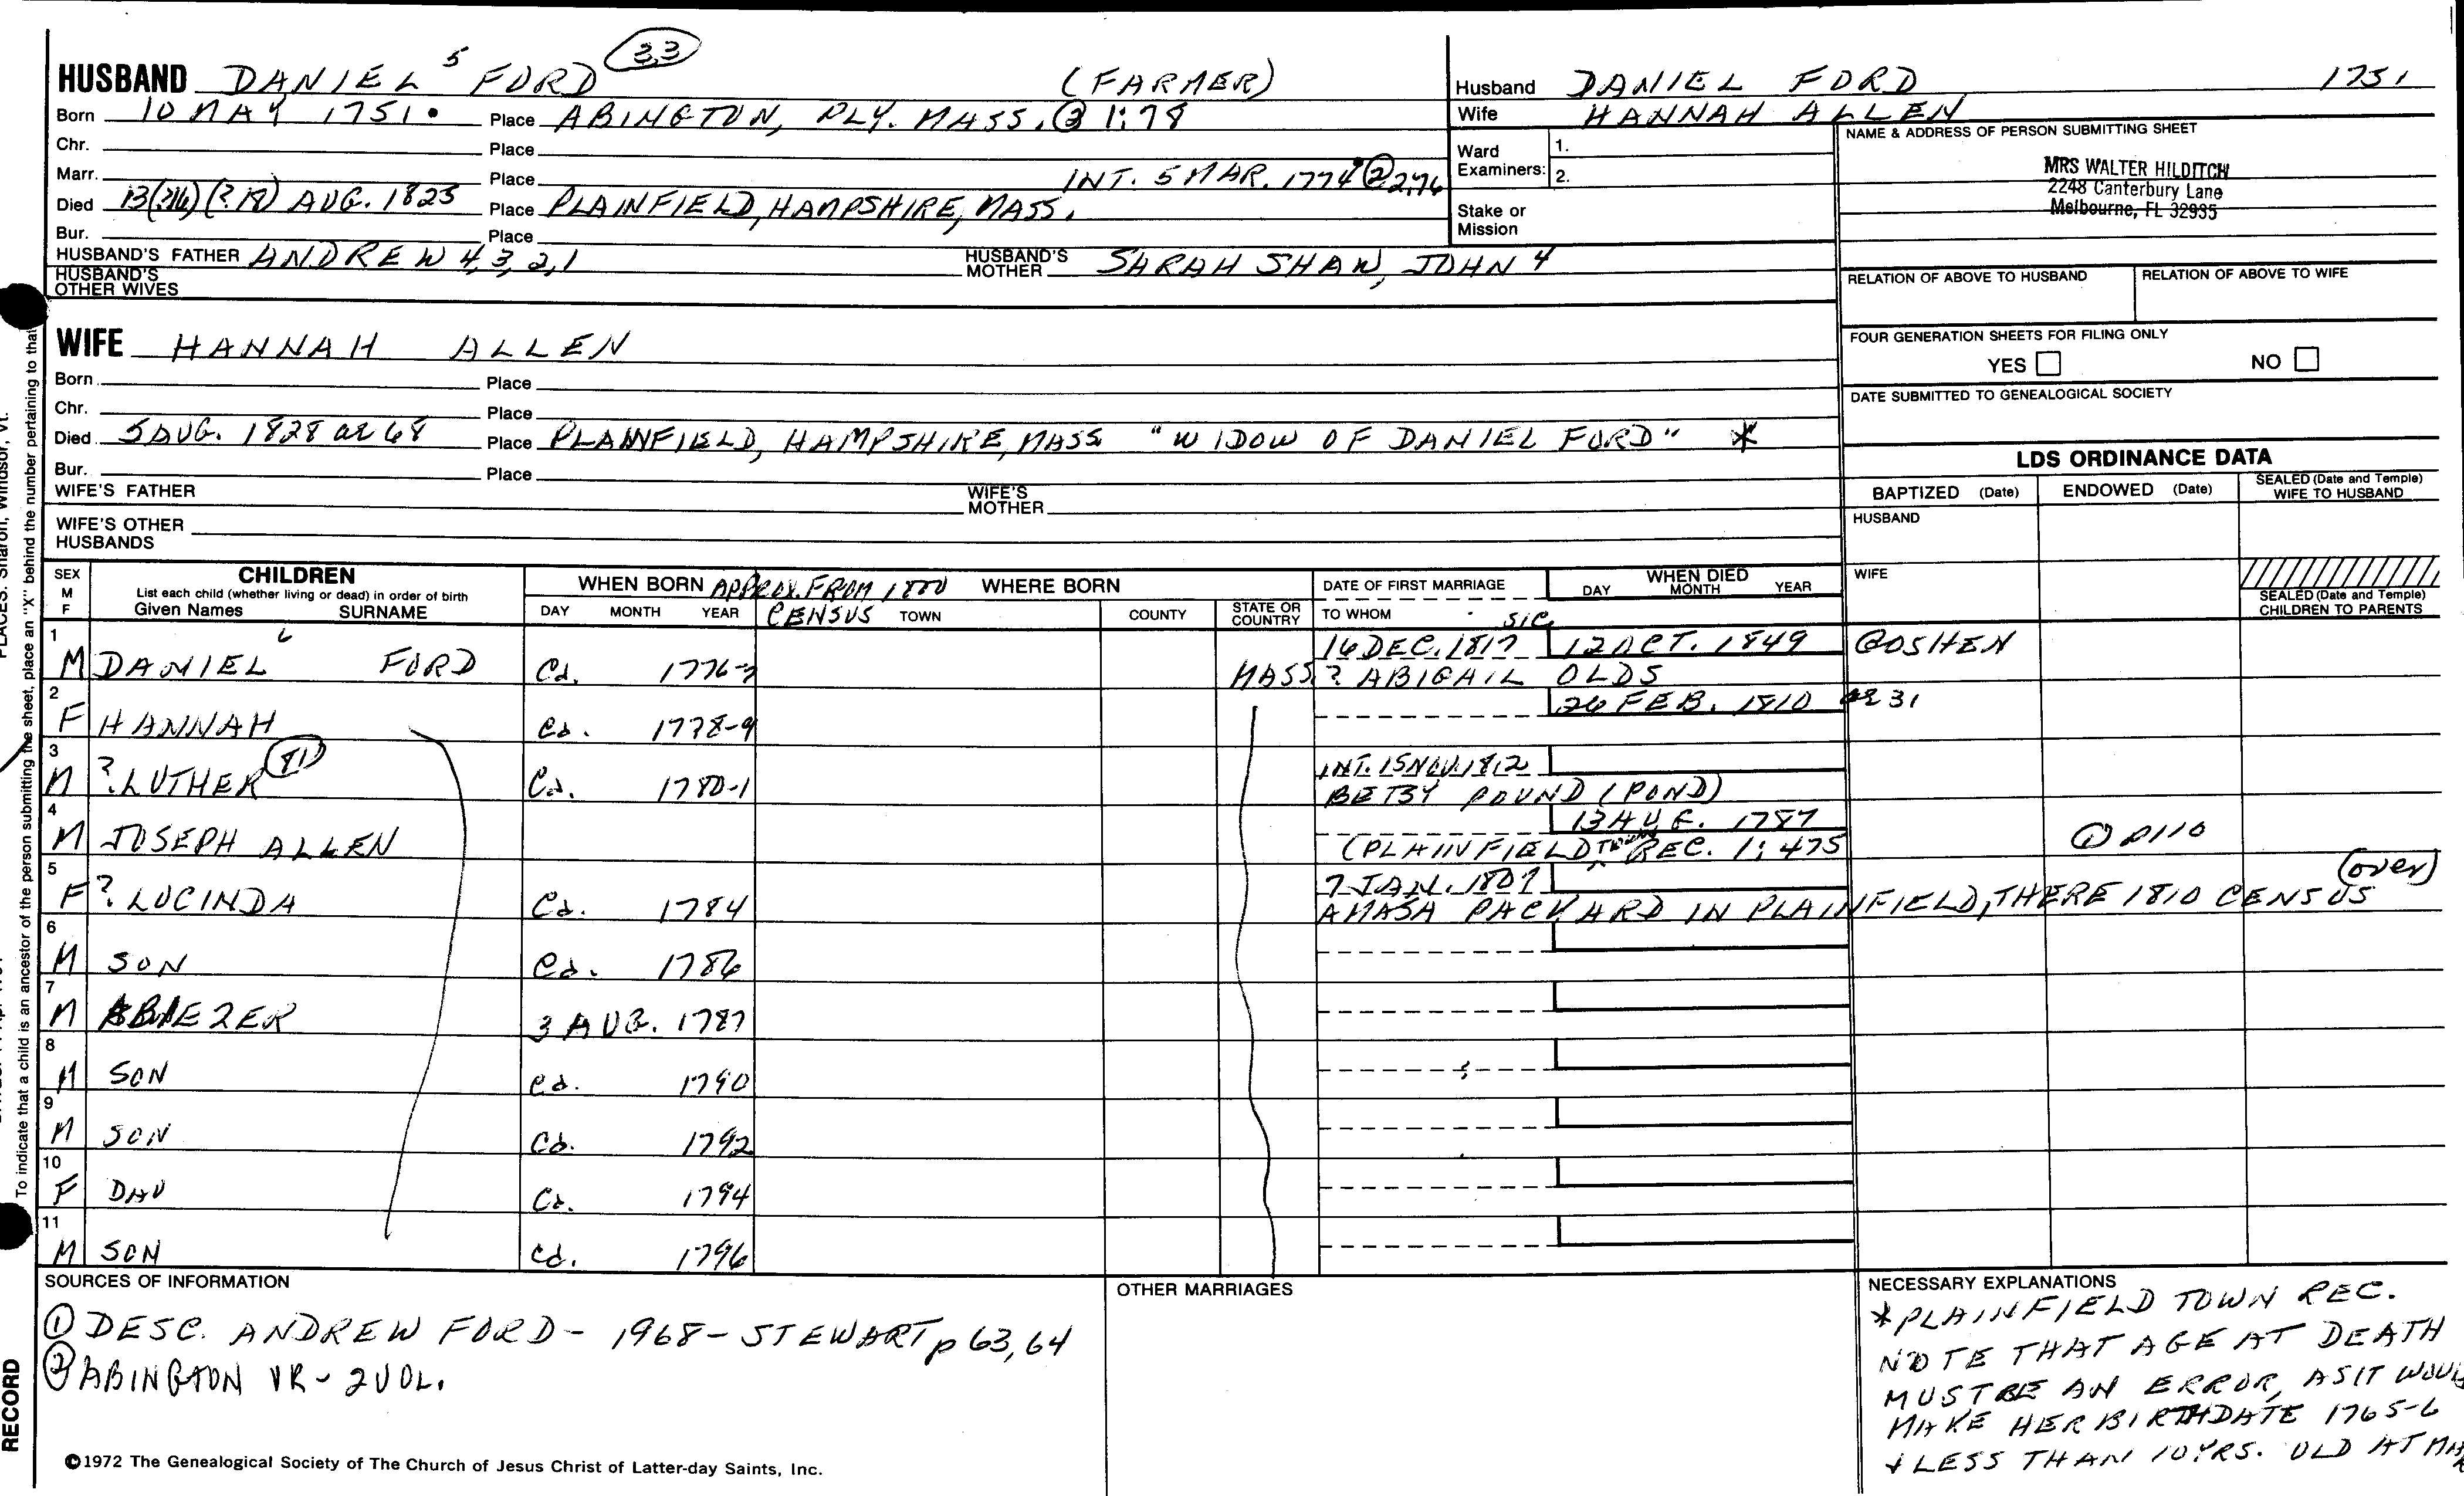 HUSBAND DANIEL 5 FORD 33 (FARMER)
Born 10 MAY 1751 Place ABINGTON, PLY. MASS. ② 1:78
Chr. Place
Marr. Place INT. 5 MAR. 1774 ② 2,76
Died 13(?16)(?18) AUG. 1823 Place PLAINFIELD, HAMPSHIRE, MASS.
Bur. Place
HUSBAND'S FATHER ANDREW 4,3,2,1 HUSBAND'S MOTHER SARAH SHAW, JOHN 4
HUSBAND'S OTHER WIVES
Husband DANIEL FORD 1751
Wife HANNAH ALLEN
Ward Examiners: 1.
2.
Stake or Mission
NAME & ADDRESS OF PERSON SUBMITTING SHEET
MRS WALTER HILDITCH
2248 Canterbury Lane
Melbourne, FL 32935
RELATION OF ABOVE TO HUSBAND RELATION OF ABOVE TO WIFE
FOUR GENERATION SHEETS FOR FILING ONLY
YES NO
DATE SUBMITTED TO GENEALOGICAL SOCIETY
WIFE HANNAH ALLEN
Born Place
Chr. Place
Died 5 AUG. 1828 ae 68 Place PLAINFIELD, HAMPSHIRE, MASS "WIDOW OF DANIEL FORD" *
Bur. Place
WIFE'S FATHER WIFE'S MOTHER
WIFE'S OTHER HUSBANDS
LDS ORDINANCE DATA
BAPTIZED (Date) ENDOWED (Date) SEALED (Date and Temple) WIFE TO HUSBAND
HUSBAND
WIFE
SEALED (Date and Temple) CHILDREN TO PARENTS
SEX M F CHILDREN
List each child (whether living or dead) in order of birth
Given Names SURNAME
WHEN BORN APPROX. FROM 1800 CENSUS WHERE BORN
DAY MONTH YEAR TOWN COUNTY STATE OR COUNTRY
DATE OF FIRST MARRIAGE
TO WHOM
WHEN DIED
DAY MONTH YEAR
SIC
1 M DANIEL 6 FORD Ca. 1776-7 MASS 16 DEC. 1817 12 OCT. 1849 GOSHEN
? ABIGAIL OLDS
2 F HANNAH Ca. 1778-9 26 FEB. 1810 ae 31
3 M ? LUTHER 81 Ca. 1780-1 INT. 15 NOV. 1812
BETSY POUND (POND)
4 M JOSEPH ALLEN 13 AUG. 1787
(PLAINFIELD TOWN REC. 1:475 ① p110
5 F ? LUCINDA Ca. 1784 7 JAN. 1807 (over)
AMASA PACKARD IN PLAINFIELD, THERE 1810 CENSUS
6 M SON Ca. 1786
7 M ABIEZER 3 AUG. 1787
8 M SON Ca. 1790
9 M SON Ca. 1792
10 F DAU Ca. 1794
11 M SON Ca. 1796
SOURCES OF INFORMATION
① DESC. ANDREW FORD - 1968 - STEWART p 63,64
② ABINGTON VR - 2 VOL.
OTHER MARRIAGES
NECESSARY EXPLANATIONS
* PLAINFIELD TOWN REC.
NOTE THAT AGE AT DEATH
MUST BE AN ERROR, AS IT WOUL
MAKE HER BIRTHDATE 1765-6
+ LESS THAN 10 YRS. OLD AT
©1972 The Genealogical Society of The Church of Jesus Christ of Latter-day Saints, Inc.
To indicate that a child is an ancestor of the person submitting the sheet, place an "X" behind the number pertaining to that
PLACES: Sharon, Windsor, Vt.
RECORD